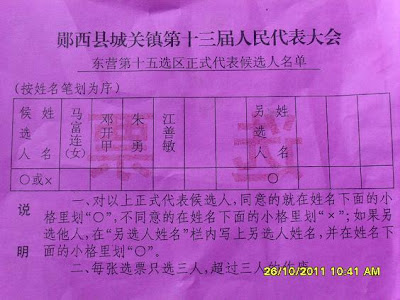 郧西县城关镇第十三届人民代表大会
东营第十五选区正式代表候选人名单
(按姓名笔划为序)
候选人 姓名 马富连(女) 邓开甲 朱勇 江善敏 另选人 姓名
○或× ○
票 选
说明
一、对以上正式代表候选人，同意的就在姓名下面的小
格里划“○”，不同意的在姓名下面的小格里划“×”；如果另
选他人，在“另选人姓名”栏内写上另选人姓名，并在姓名下
面的小格里划“○”。
二、每张选票只选三人，超过三人的作废
26/10/2011 10:41 AM